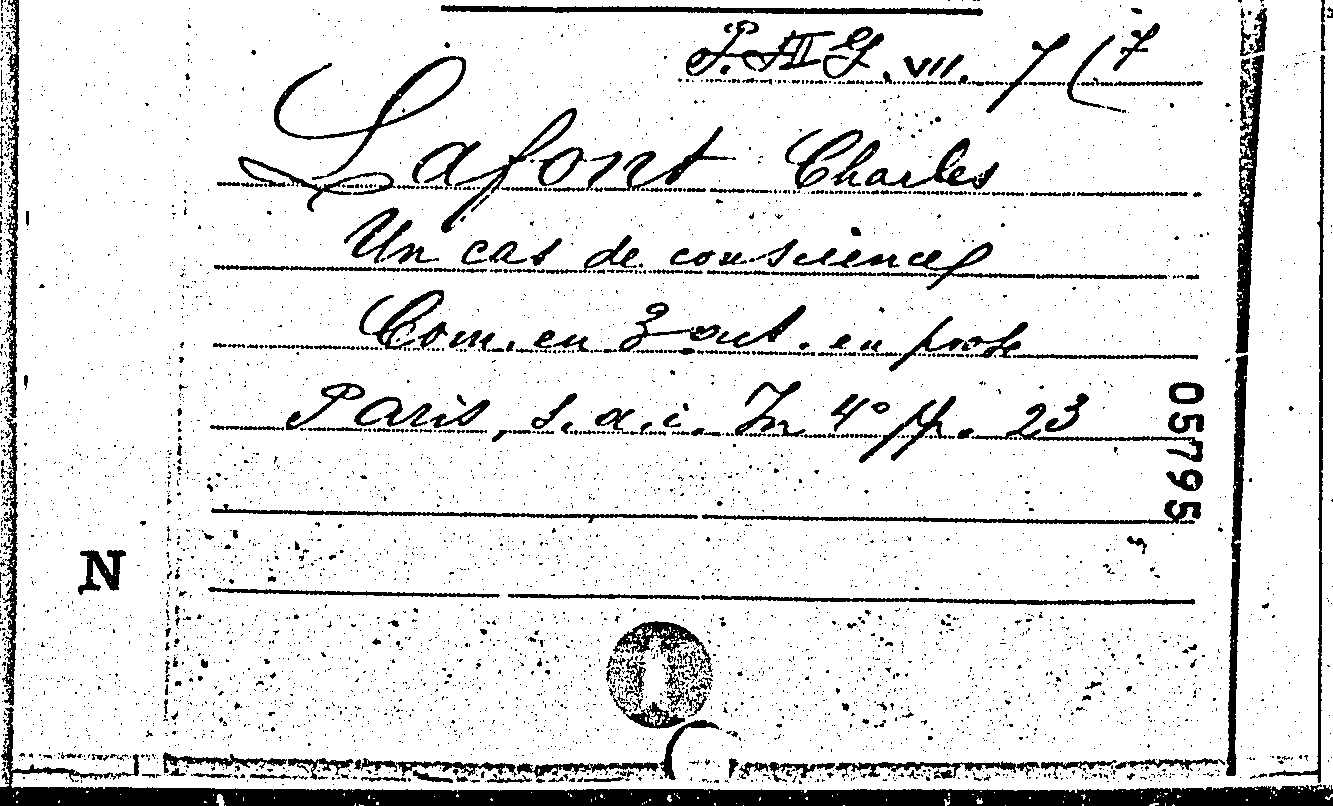 P. III G. VII. 7 (7
Lafont Charles
Un cas de conscience
Com. en 3 act. en prose
Paris, s. a. i. In 4° pp. 23
05795
N